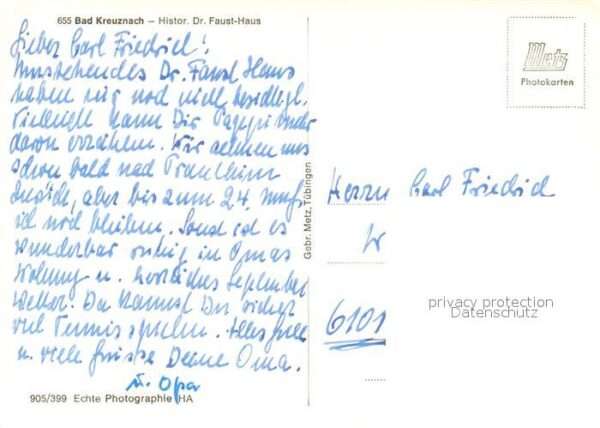 655 Bad Kreuznach – Histor. Dr. Faust-Haus
Lieber Carl Friedrich!
Umstehendes Dr. Faust Haus
haben wir noch nicht besichtigt.
Vielleicht kann Dir
davon erzählen. Wir sehnen uns
schon bald nach
zurück, aber bis zum 24. muß
ich noch bleiben. Sonst ist es
wunderbar ruhig in Omas
Wohnung u. herrliches September
Wetter. Da kannst Du richtig
viel Tennis spielen. Alles Gute
u. viele Grüsse Deine Oma.
u. Opa
905/399 Echte Photographie HA
Gebr. Metz, Tübingen
Metz
Photokarten
Herrn Carl Friedrich
W
6101
privacy protection
Datenschutz